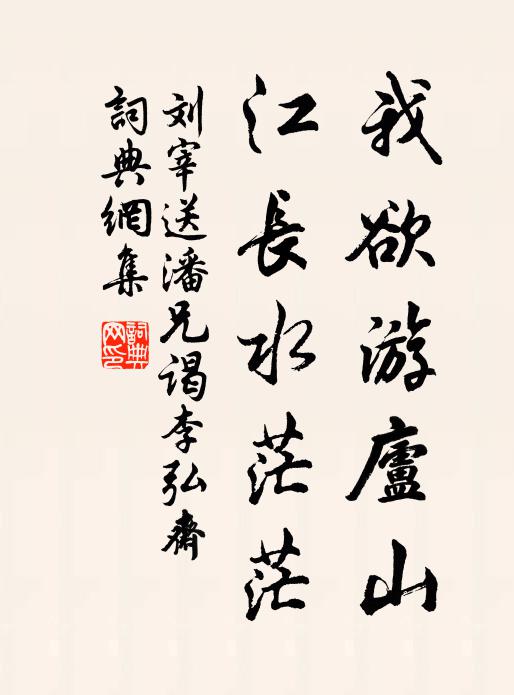 我欲游廬山
江長水茫茫
刘宰送潘兄谒李弘齋
詞典網集
詞典网印